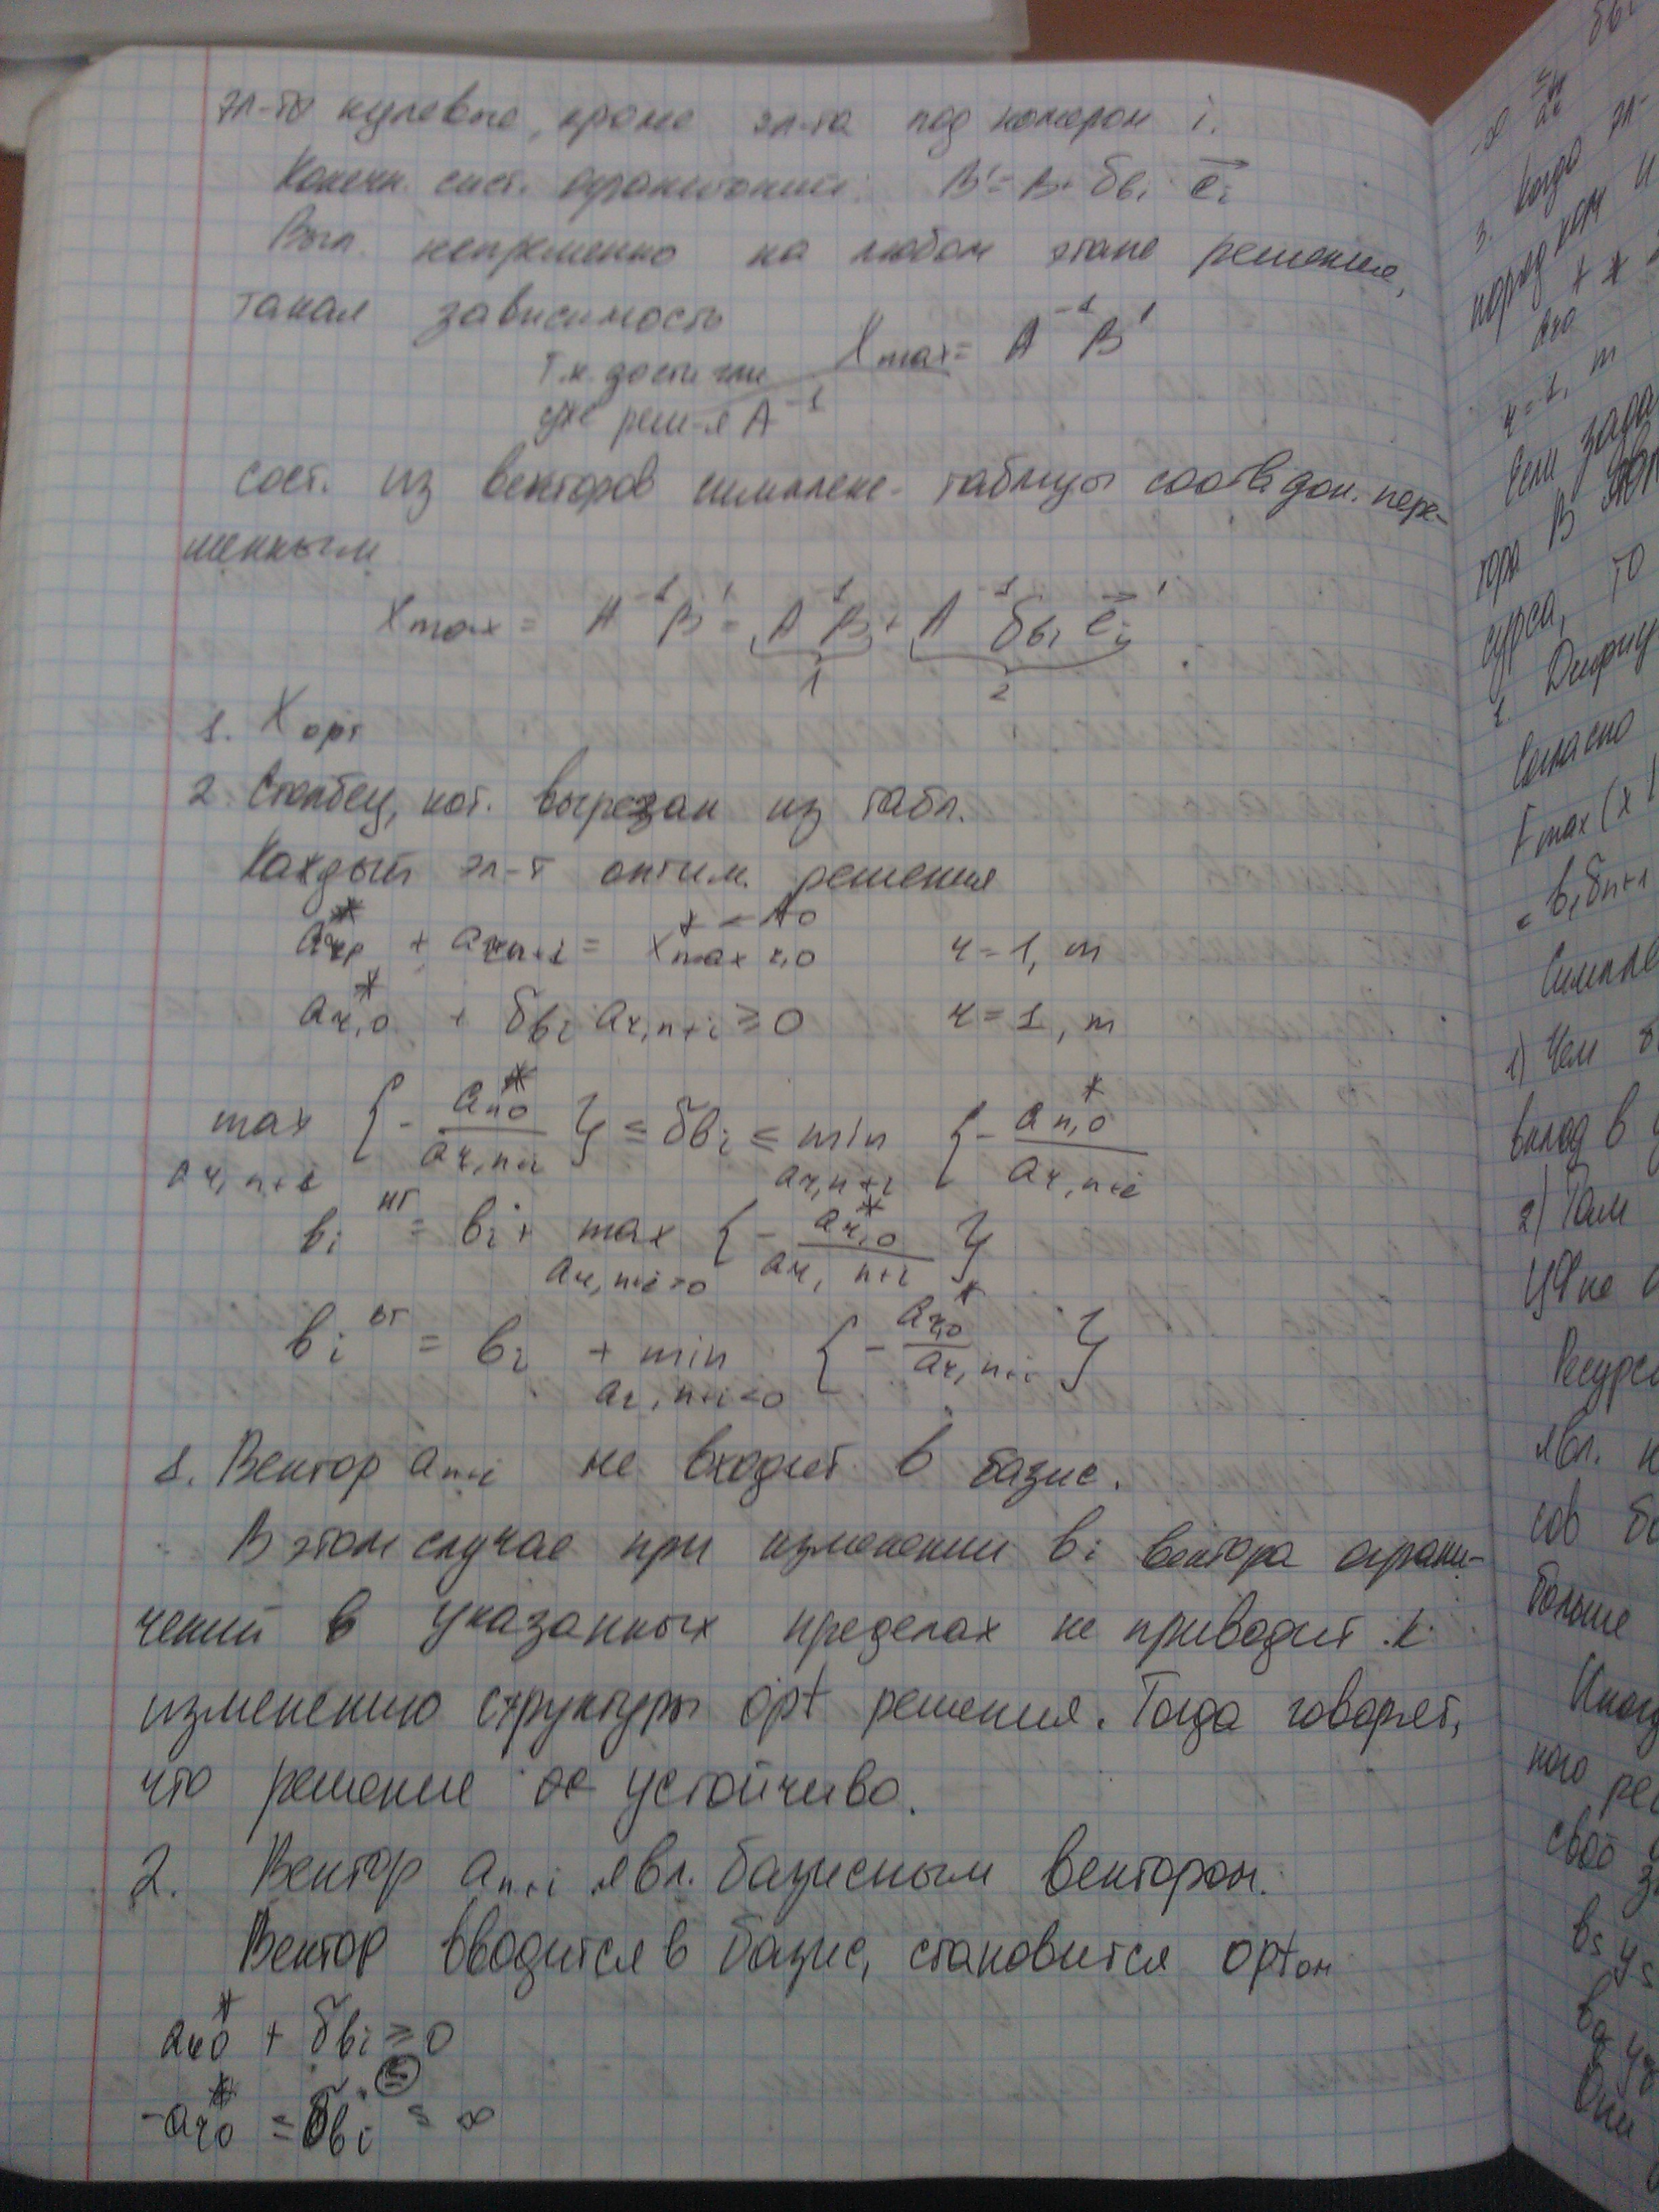 эл-ты нулевые, кроме эл-та под номером i.
Конечн. сист. ограничений: B' = B + δbi · e⃗i
Вып. непременно на любом этапе решения,
такая зависимость
Xmax = A⁻¹ B'
т.к. достигли
уже реш-я A⁻¹
сост. из векторов симплекс- таблицы соотв. доп. пере-
менным
Xmax = A⁻¹B' = A⁻¹B + A⁻¹ δbi e⃗i
1 2
1. Xopt
2. Столбец, кот. вырезан из табл.
Каждый эл-т оптим. решения
+ ar,n+i = xmax r,0 r = 1, m
a*r,0 + δbi ar,n+i ≥ 0 r = 1, m
max { - a*r,0 / ar,n+i } ≤ δbi ≤ min { - a*r,0 / ar,n+i
ar,n+i ar,n+i
bi нг = bi + max { - a*r,0 / ar,n+i }
ar,n+i>0
bi вг = bi + min { - a*r,0 / ar,n+i }
ar,n+i<0
1. Вектор an+i не входит в базис.
В этом случае при изменении bi вектора ограни-
чений в указанных пределах не приводит к
изменению структуры opt решения. Тогда говорят,
что решение устойчиво.
2. Вектор an+i явл. базисным вектором.
Вектор вводится в базис, становится optом
a*r0 + δbi ≥ 0
-a*r0 = δbi ≤ ∞
3. Когда эл-
r = 1, m
Если зада
тора B
сурса, то
1.
Согласно
Fmax(x
= bi δn+i
Симпле
1) Чем
вклад в
2) Там
ЦФ не
Ресурс
явл. н
сов
больше
ного ре
свое
bs ys
Они